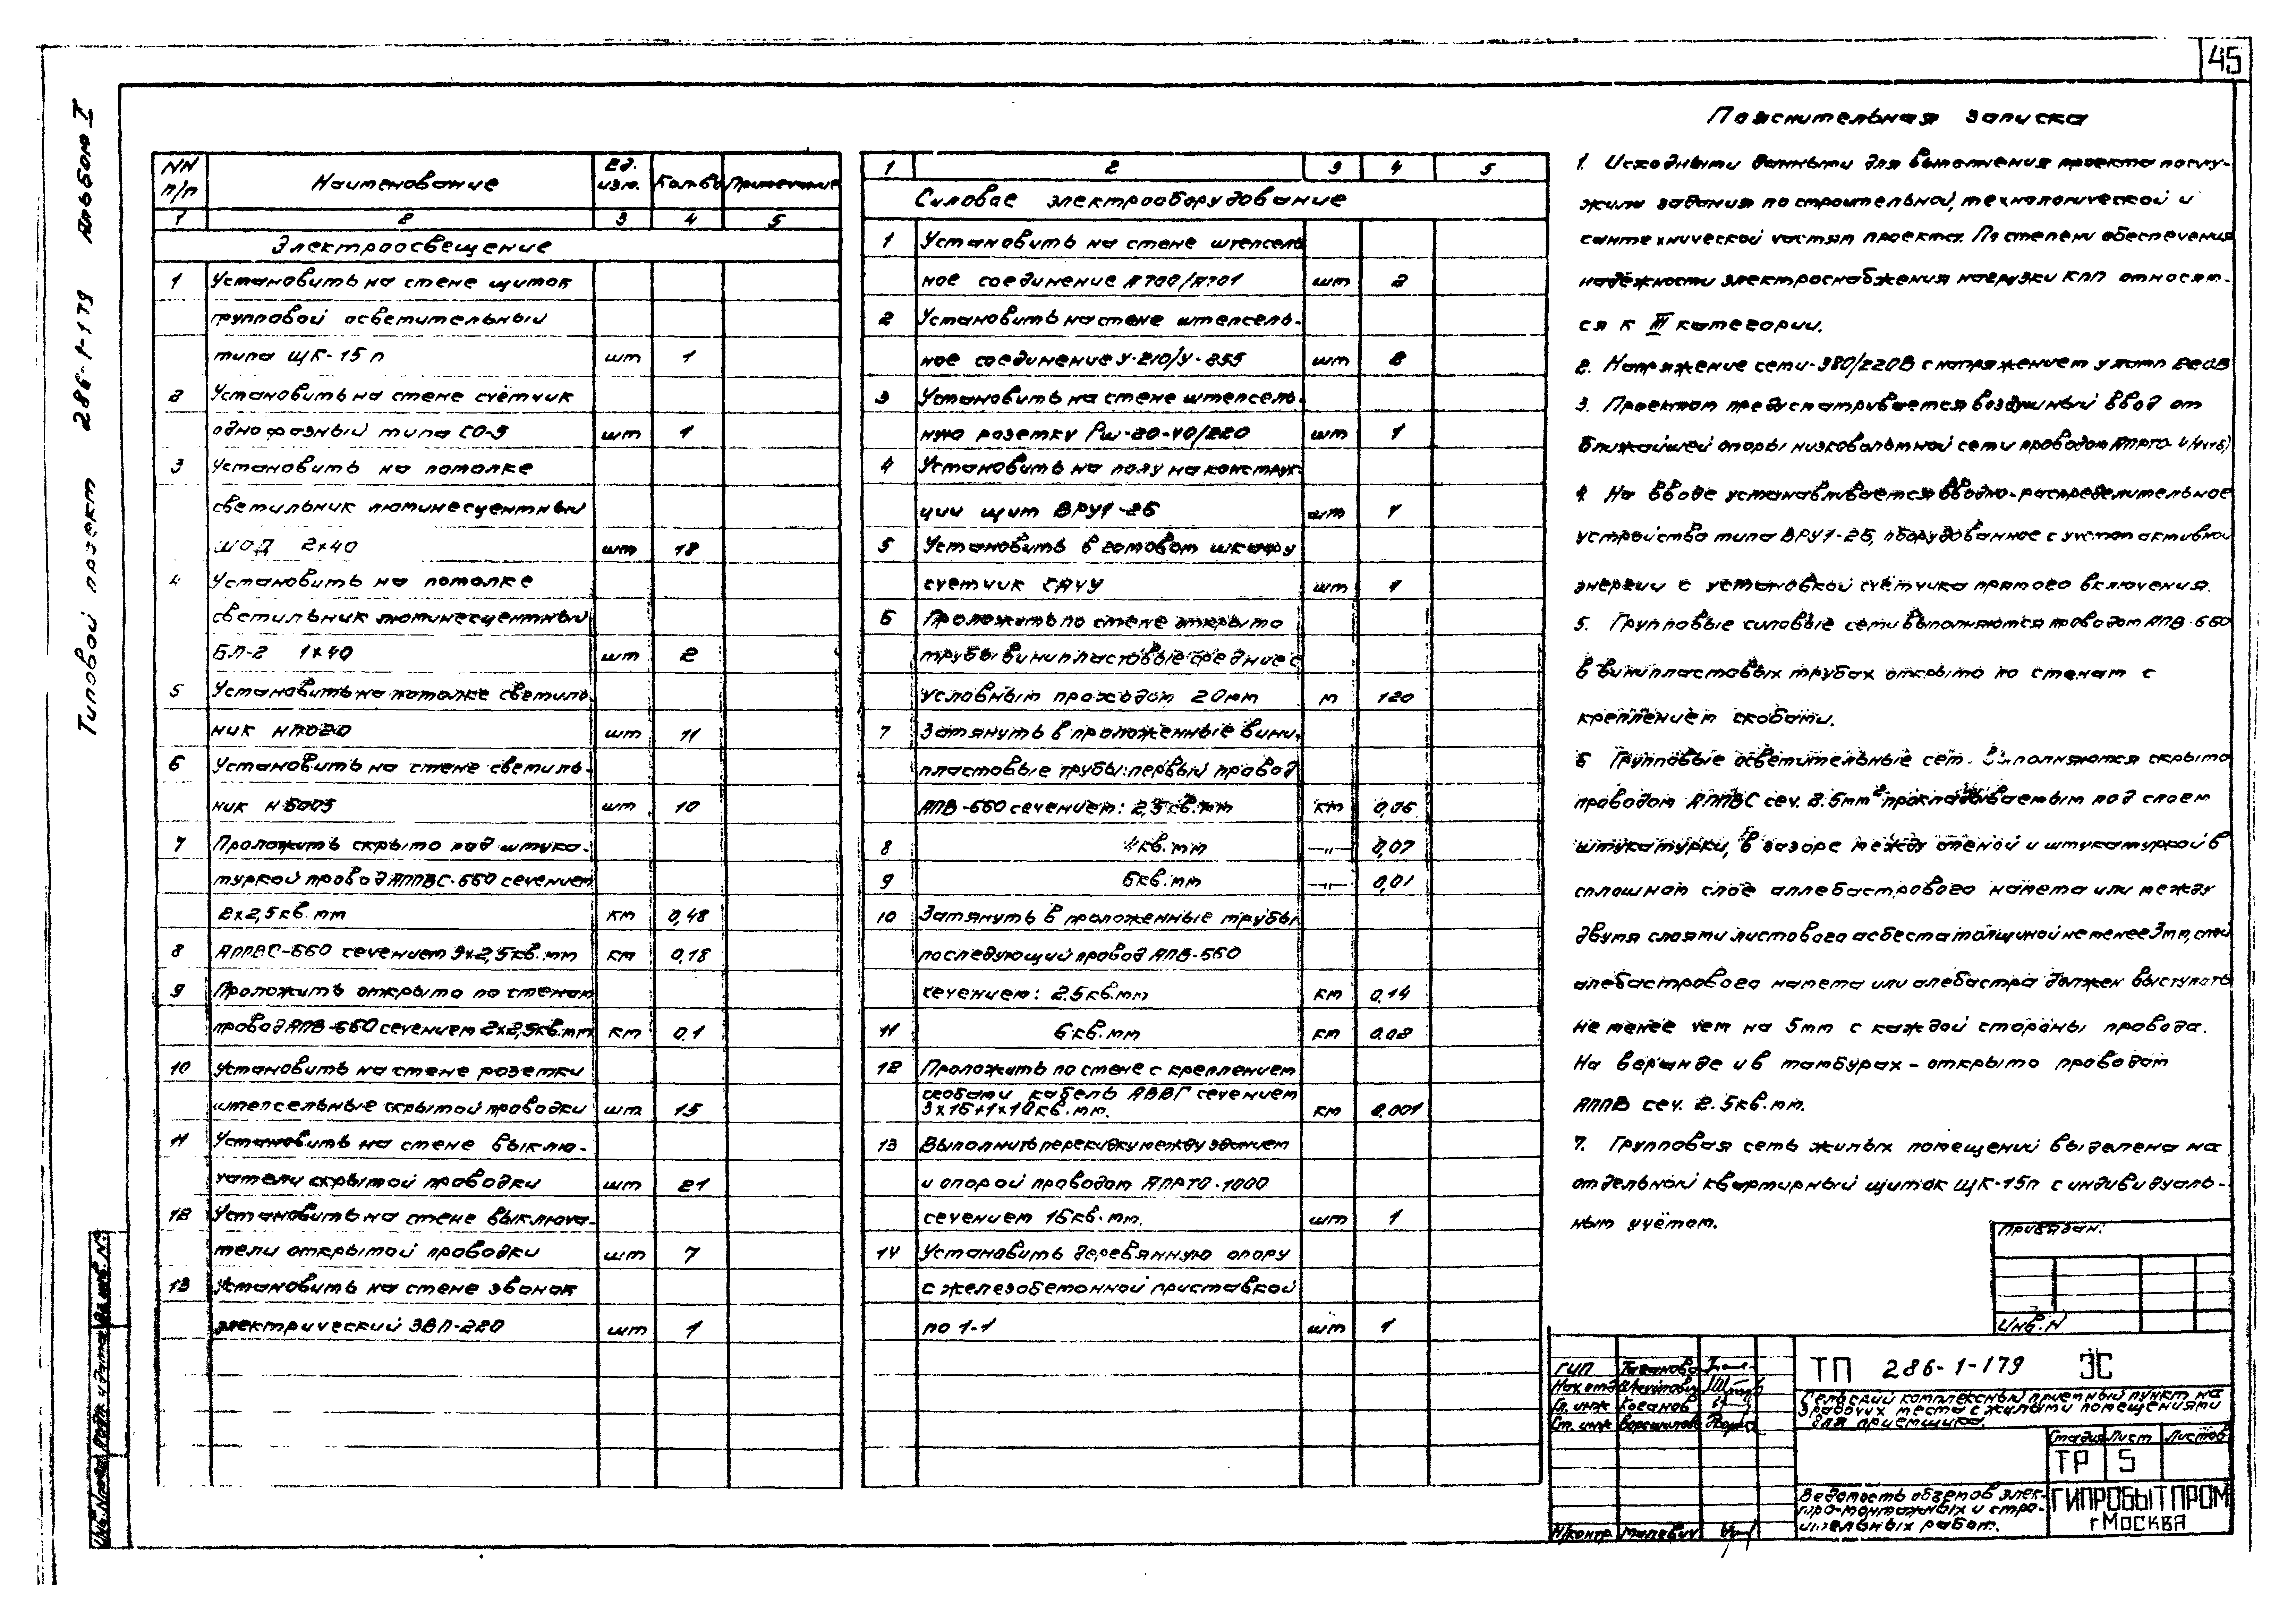 45
Типовой проект 286-1-179 Альбом I
NN п/п Наименование Ед. изм. Кол-во Примечание
1 2 3 4 5
Электроосвещение
1 Установить на стене щиток
групповой осветительный
типа ЩК-15п шт 1
2 Установить на стене счётчик
однофазный типа СО-5 шт 1
3 Установить на потолке
светильник люминесцентный
ШОД 2х40 шт 18
4 Установить на потолке
светильник люминесцентный
БЛ-2 1х40 шт 2
5 Установить на потолке светиль-
ник НПО20 шт 11
6 Установить на стене светиль-
ник НБО05 шт 10
7 Проложить скрыто под штука-
туркой провод АППВС-660 сечением
2х2,5кв.мм км 0,48
8 АППВС-660 сечением 3х2,5кв.мм км 0,18
9 Проложить открыто по стенам
провод АПВ-660 сечением 2х2,5кв.мм км 0,1
10 Установить на стене розетки
штепсельные скрытой проводки шт 15
11 Установить на стене выклю-
чатели скрытой проводки шт 21
12 Установить на стене выключа-
тели открытой проводки шт 7
13 Установить на стене звонок
электрический ЗВП-220 шт 1
1 2 3 4 5
Силовое электрооборудование
1 Установить на стене штепсель
ное соединение А700/А701 шт 2
2 Установить на стене штепсель-
ное соединение У-210/У-255 шт 8
3 Установить на стене штепсель-
ную розетку Рш-20-40/220 шт 1
4 Установить на полу на конструк-
ции щит ВРУ1-26 шт 1
5 Установить в готовом шкафу
счетчик СА4У шт 1
6 Проложить по стене открыто
трубы винипластовые средние с
условным проходом 20мм м 120
7 Затянуть в проложенные вини-
пластовые трубы: первый провод
АПВ-660 сечением: 2,5кв.мм км 0,06
8 4кв.мм —"— 0,07
9 6кв.мм —"— 0,01
10 Затянуть в проложенные трубы
последующий провод АПВ-660
сечением: 2.5кв.мм км 0,14
11 6кв.мм км 0.08
12 Проложить по стене с креплением
скобами кабель АВВГ сечением
3х16+1х10кв.мм. км 0.001
13 Выполнить перекидку между зданием
и опорой проводом АПРТО-1000
сечением 16кв.мм. шт 1
14 Установить деревянную опору
с железобетонной приставкой
по 1-1 шт 1
Пояснительная записка
1. Исходными данными для выполнения проекта послу-
жили задания по строительной, технологической и
сантехнической частям проекта. По степени обеспечения
надёжности электроснабжения нагрузки КПП относят-
ся к III категории.
2. Напряжение сети-380/220В с напряжением у ламп 220В
3. Проектом предусматривается воздушный ввод от
ближайшей опоры низковольтной сети проводом АПРТО-4(1х16)
4. На вводе устанавливается вводно-распределительное
устройство типа ВРУ1-26, оборудованное с учетом активной
энергии с установкой счётчика прямого включения.
5. Групповые силовые сети выполняются проводом АПВ-660
в винипластовых трубах открыто по стенам с
креплением скобами.
6 Групповые осветительные сет. выполняются скрыто
проводом АППВС сеч. 2.5мм² прокладываемым под слоем
штукатурки, в зазоре между стеной и штукатуркой в
сплошном слое аллебастрового намета или между
двумя слоями листового асбеста толщиной не менее 3мм, слой
алебастрового намета или алебастра должен выступать
не менее чем на 5мм с каждой стороны провода.
На веранде и в тамбурах - открыто проводом
АППВ сеч. 2.5кв.мм.
7. Групповая сеть жилых помещений выделена на
отдельный квартирный щиток ЩК-15п с индивидуаль-
ным учётом.
Привязан:
Инв. N
ГИП
Нач.отд
Гл. инж Коганов
Ст. инж Ворошилова
Н/контр Малевич
ТП 286-1-179 ЭС
Сельский комплексный приемный пункт на
3 рабочих места с жилыми помещениями
для приемщика.
Стадия Лист Листов
ТР 5
Ведомость объемов элек-
тро-монтажных и стро-
ительных работ.
ГИПРОБЫТПРОМ
г Москва
Инв. N подл. Подп. и дата Вз. инв. N